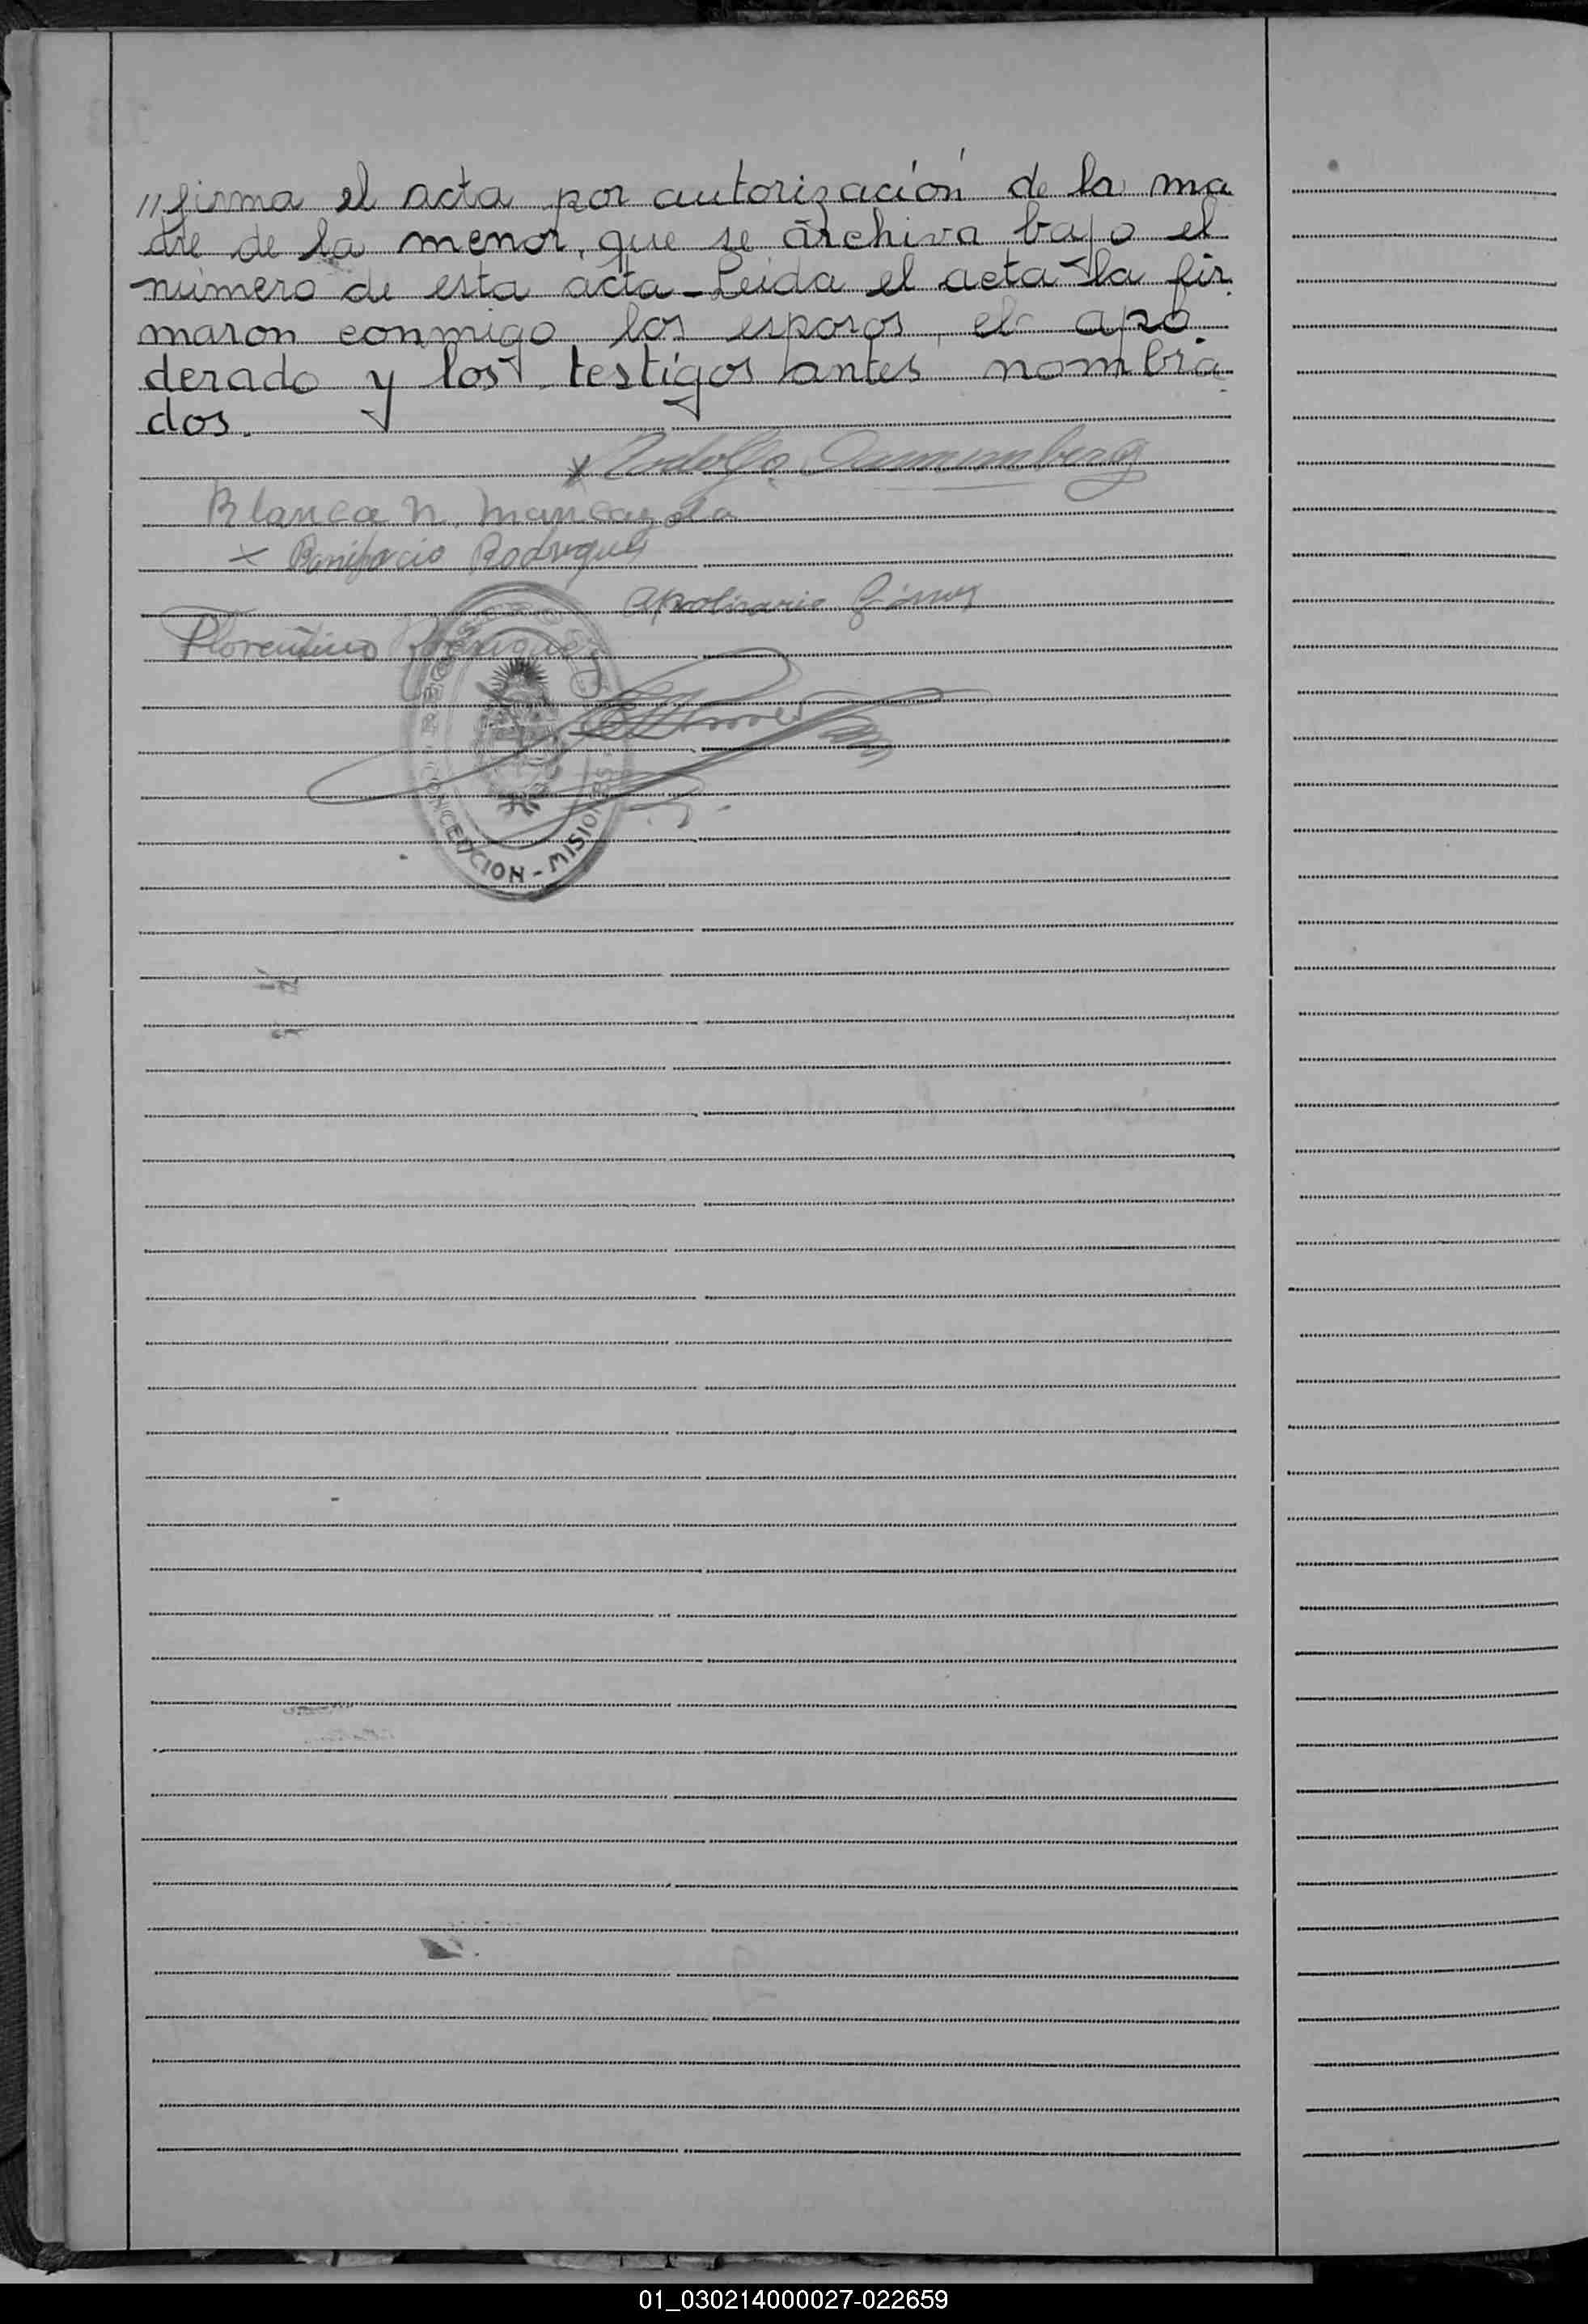 //firma el acta por autorización de la ma
dre de la menor, que se archiva bajo el
número de esta acta - Leida el acta la fir
maron conmigo los esposos, el apo
derado y los testigos antes nombra
dos.
x Rodolfo
Blanca N.
x Bonifacio Rodrigues
Apolinario
Florentino
CONCEPCION - MISIONES
01_030214000027-022659